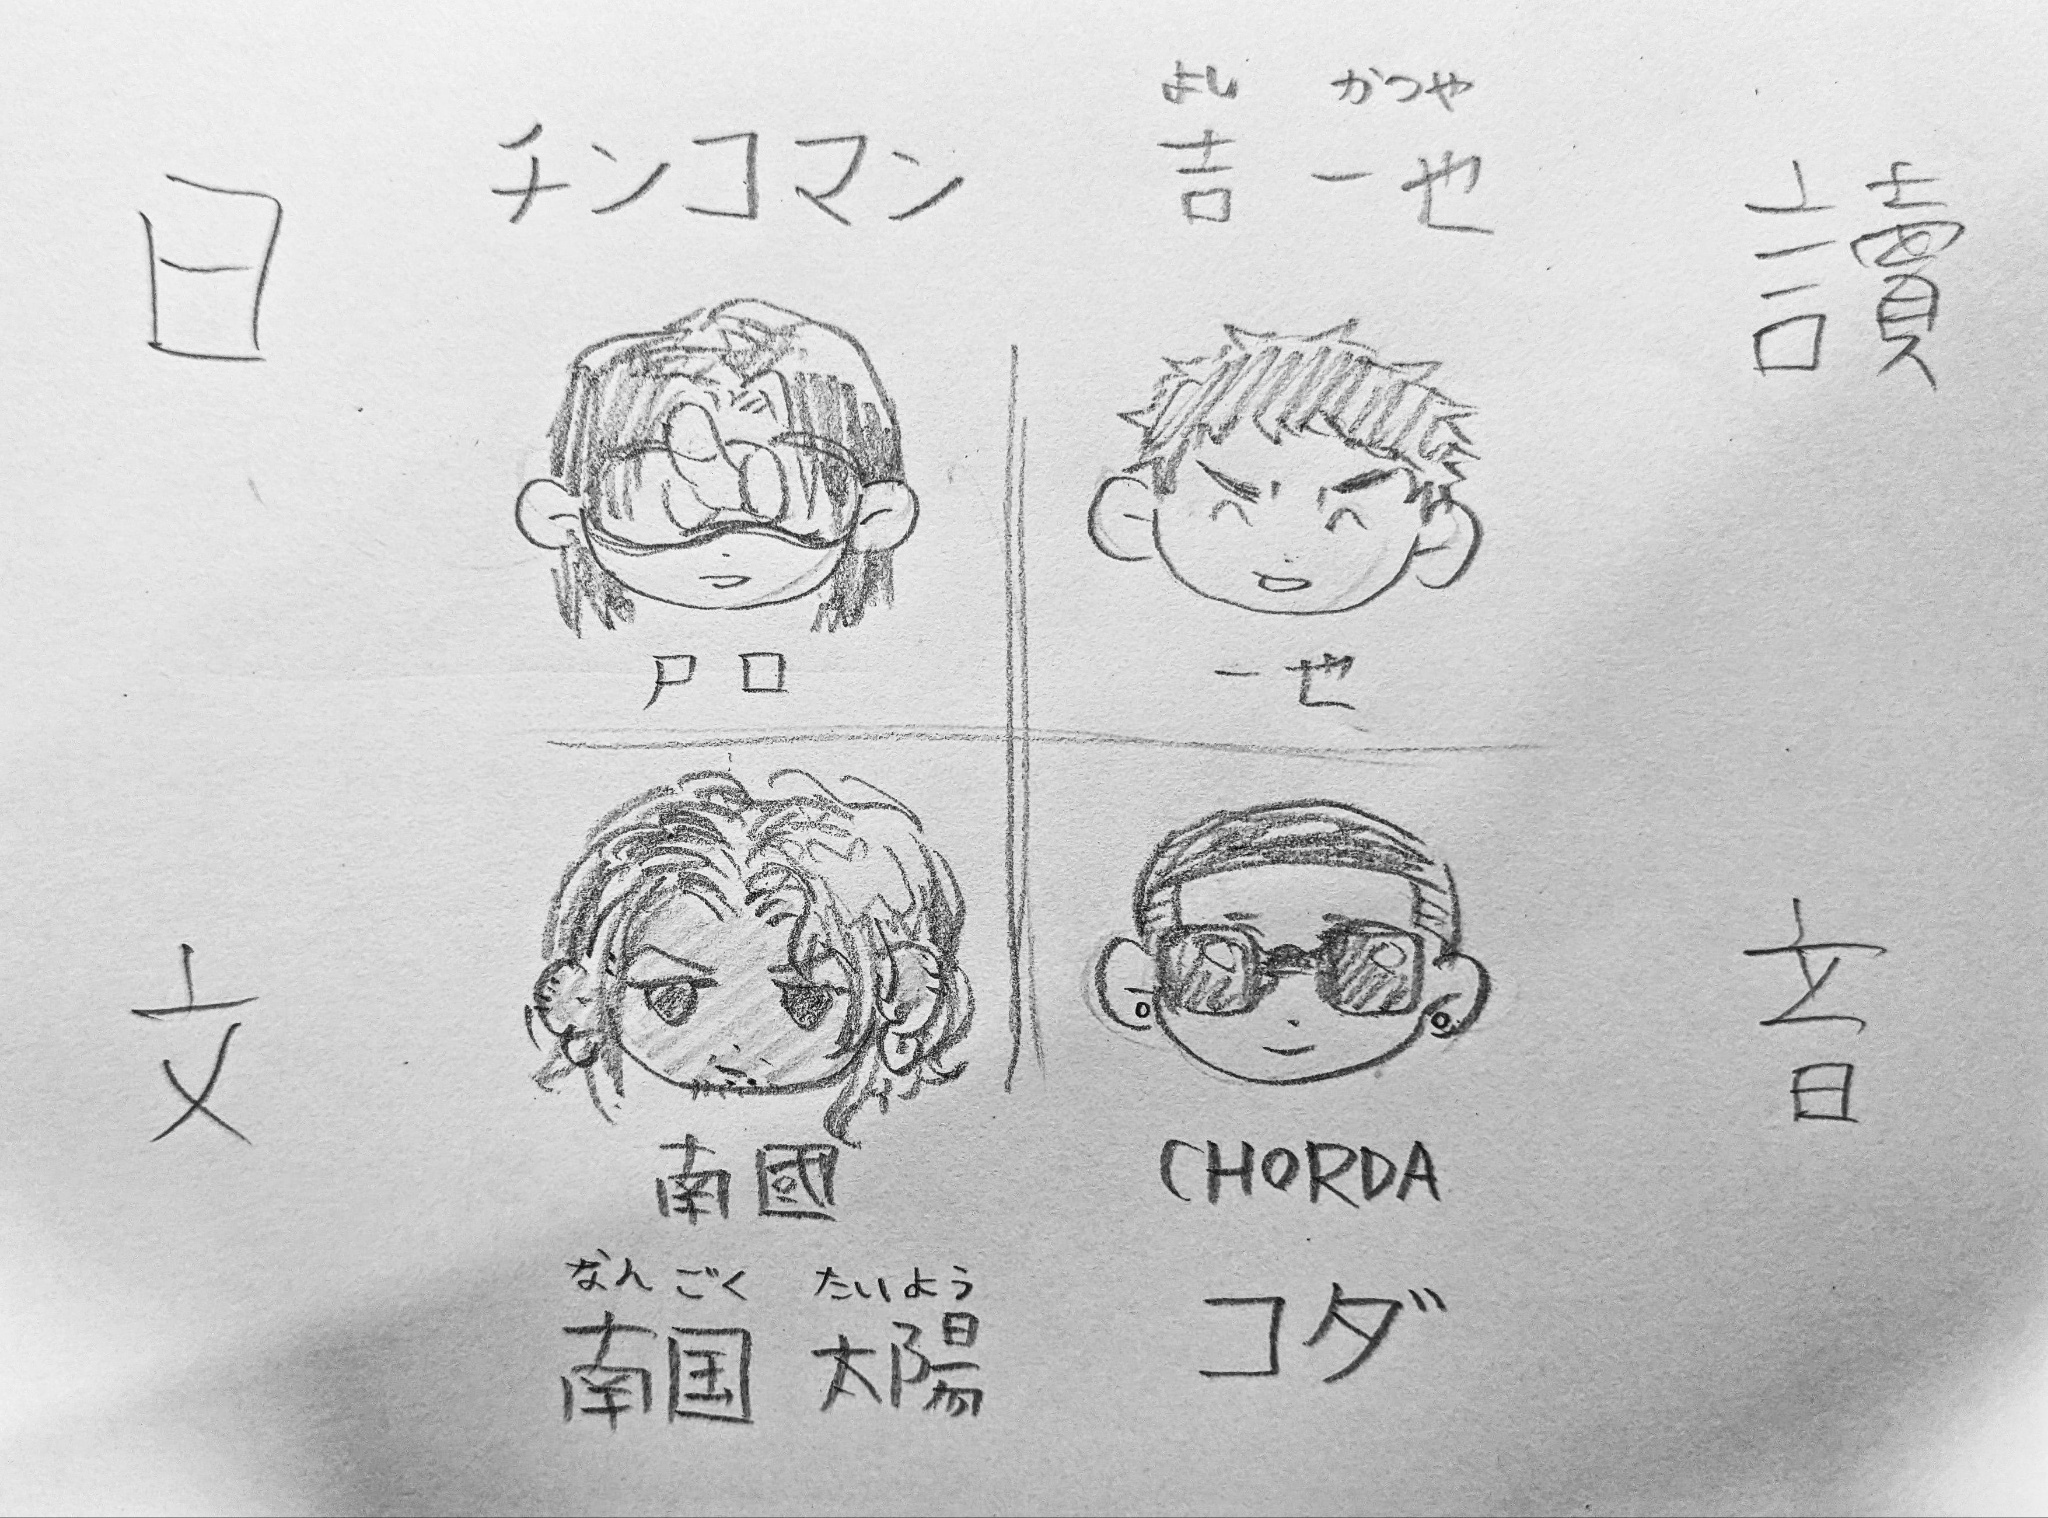 よし かつや
チンコマン
吉 一也
日
讀
戸口
一也
文
音
南國
CHORDA
なんごく たいよう
南国 太陽
コダ